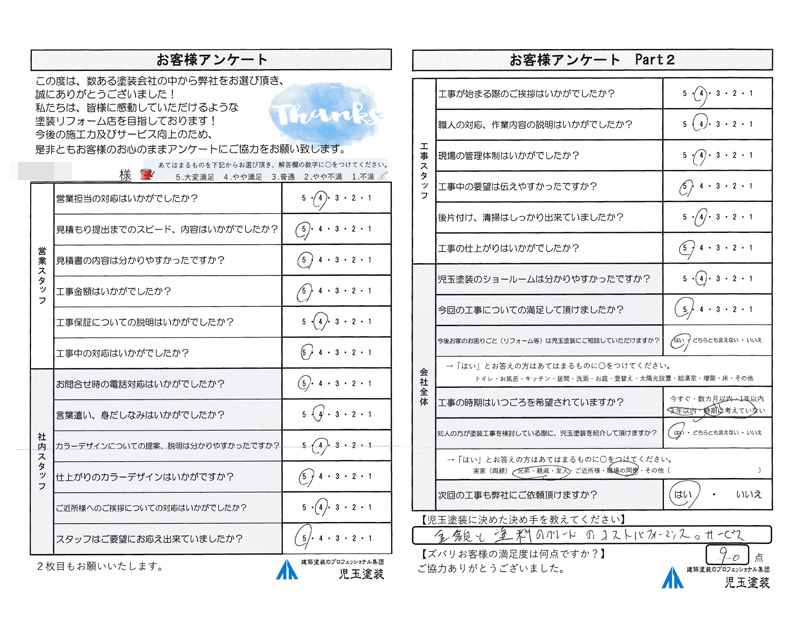 お客様アンケート
この度は、数ある塗装会社の中から弊社をお選び頂き、
誠にありがとうございました！
私たちは、皆様に感動していただけるような
塗装リフォーム店を目指しております！
今後の施工力及びサービス向上のため、
是非ともお客様のお心のままアンケートにご協力をお願い致します。
Thanks
様
あてはまるものを下記からお選び頂き、解答欄の数字に○をつけてください。
5.大変満足 4.やや満足 3.普通 2.やや不満 1.不満
営業スタッフ
営業担当の対応はいかがでしたか？ 5・4・3・2・1
見積もり提出までのスピード、内容はいかがでしたか？ 5・4・3・2・1
見積書の内容は分かりやすかったですか？ 5・4・3・2・1
工事金額はいかがでしたか？ 5・4・3・2・1
工事保証についての説明はいかがでしたか？ 5・4・3・2・1
工事中の対応はいかがでしたか？ 5・4・3・2・1
社内スタッフ
お問合せ時の電話対応はいかがでしたか？ 5・4・3・2・1
言葉遣い、身だしなみはいかがでしたか？ 5・4・3・2・1
カラーデザインについての提案、説明は分かりやすかったですか？ 5・4・3・2・1
仕上がりのカラーデザインはいかがですか？ 5・4・3・2・1
ご近所様へのご挨拶についての対応はいかがでしたか？ 5・4・3・2・1
スタッフはご要望にお応え出来ていましたか？ 5・4・3・2・1
2枚目もお願いいたします。
建築塗装のプロフェッショナル集団
児玉塗装
お客様アンケート Part２
工事スタッフ
工事が始まる際のご挨拶はいかがでしたか？ 5・4・3・2・1
職人の対応、作業内容の説明はいかがでしたか？ 5・4・3・2・1
現場の管理体制はいかがでしたか？ 5・4・3・2・1
工事中の要望は伝えやすかったですか？ 5・4・3・2・1
後片付け、清掃はしっかり出来ていましたか？ 5・4・3・2・1
工事の仕上がりはいかがでしたか？ 5・4・3・2・1
会社全体
児玉塗装のショールームは分かりやすかったですか？ 5・4・3・2・1
今回の工事についての満足して頂けましたか？ 5・4・3・2・1
今後お家のお困りごと（リフォーム等）は児玉塗装にご相談していただけますか？ はい・どちらとも言えない・いいえ
→「はい」とお答えの方はあてはまるものに○をつけてください。
トイレ・お風呂・キッチン・居間・洗面・お庭・畳替え・太陽光設置・給湯室・増築・床・その他
工事の時期はいつごろを希望されていますか？ 今すぐ・数カ月以内・1年以内
5年以内・時期は考えていない
知人の方が塗装工事を検討している際に、児玉塗装を紹介して頂けますか？ はい・どちらとも言えない・いいえ
→「はい」とお答えの方はあてはまるものに○をつけてください。
実家（両親） 兄弟・親戚・友人 ご近所様・職場の同僚・その他（ ）
次回の工事も弊社にご依頼頂けますか？ はい ・ いいえ
【児玉塗装に決めた決め手を教えてください】
金額と塗料のグレードのコストパフォーマンス。サービス
【ズバリお客様の満足度は何点ですか？】 90 点
ご協力ありがとうございました。
建築塗装のプロフェッショナル集団
児玉塗装